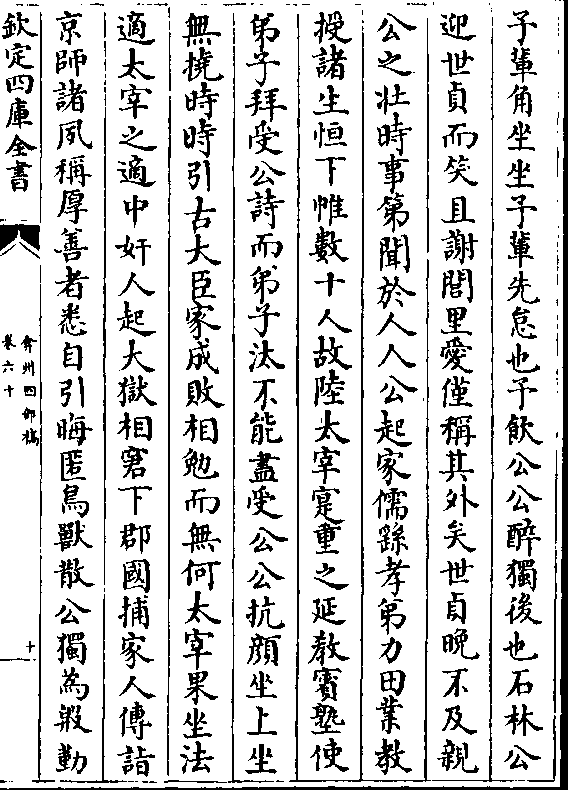 子輩角坐坐子輩先怠也予飲公公醉獨後也石林公
迎世貞而笑且謝閭里愛僅稱其外矣世貞晚不及親
公之壯時事第聞於人人公起家儒繇孝弟力田業教
授諸生恒下帷數十人故陸太宰寔重之延教賓塾使
弟子拜受公詩而弟子汰不能盡受公公抗顔坐上坐
無撓時時引古大臣家成敗相勉而無何太宰果坐法
適太宰之適中奸人起大獄相窘下郡國捕家人傳詣
京師諸夙稱厚善者悉自引晦匿鳥獸散公獨為毀勤
欽定四庫全書
弇州四部稿
卷六十
十